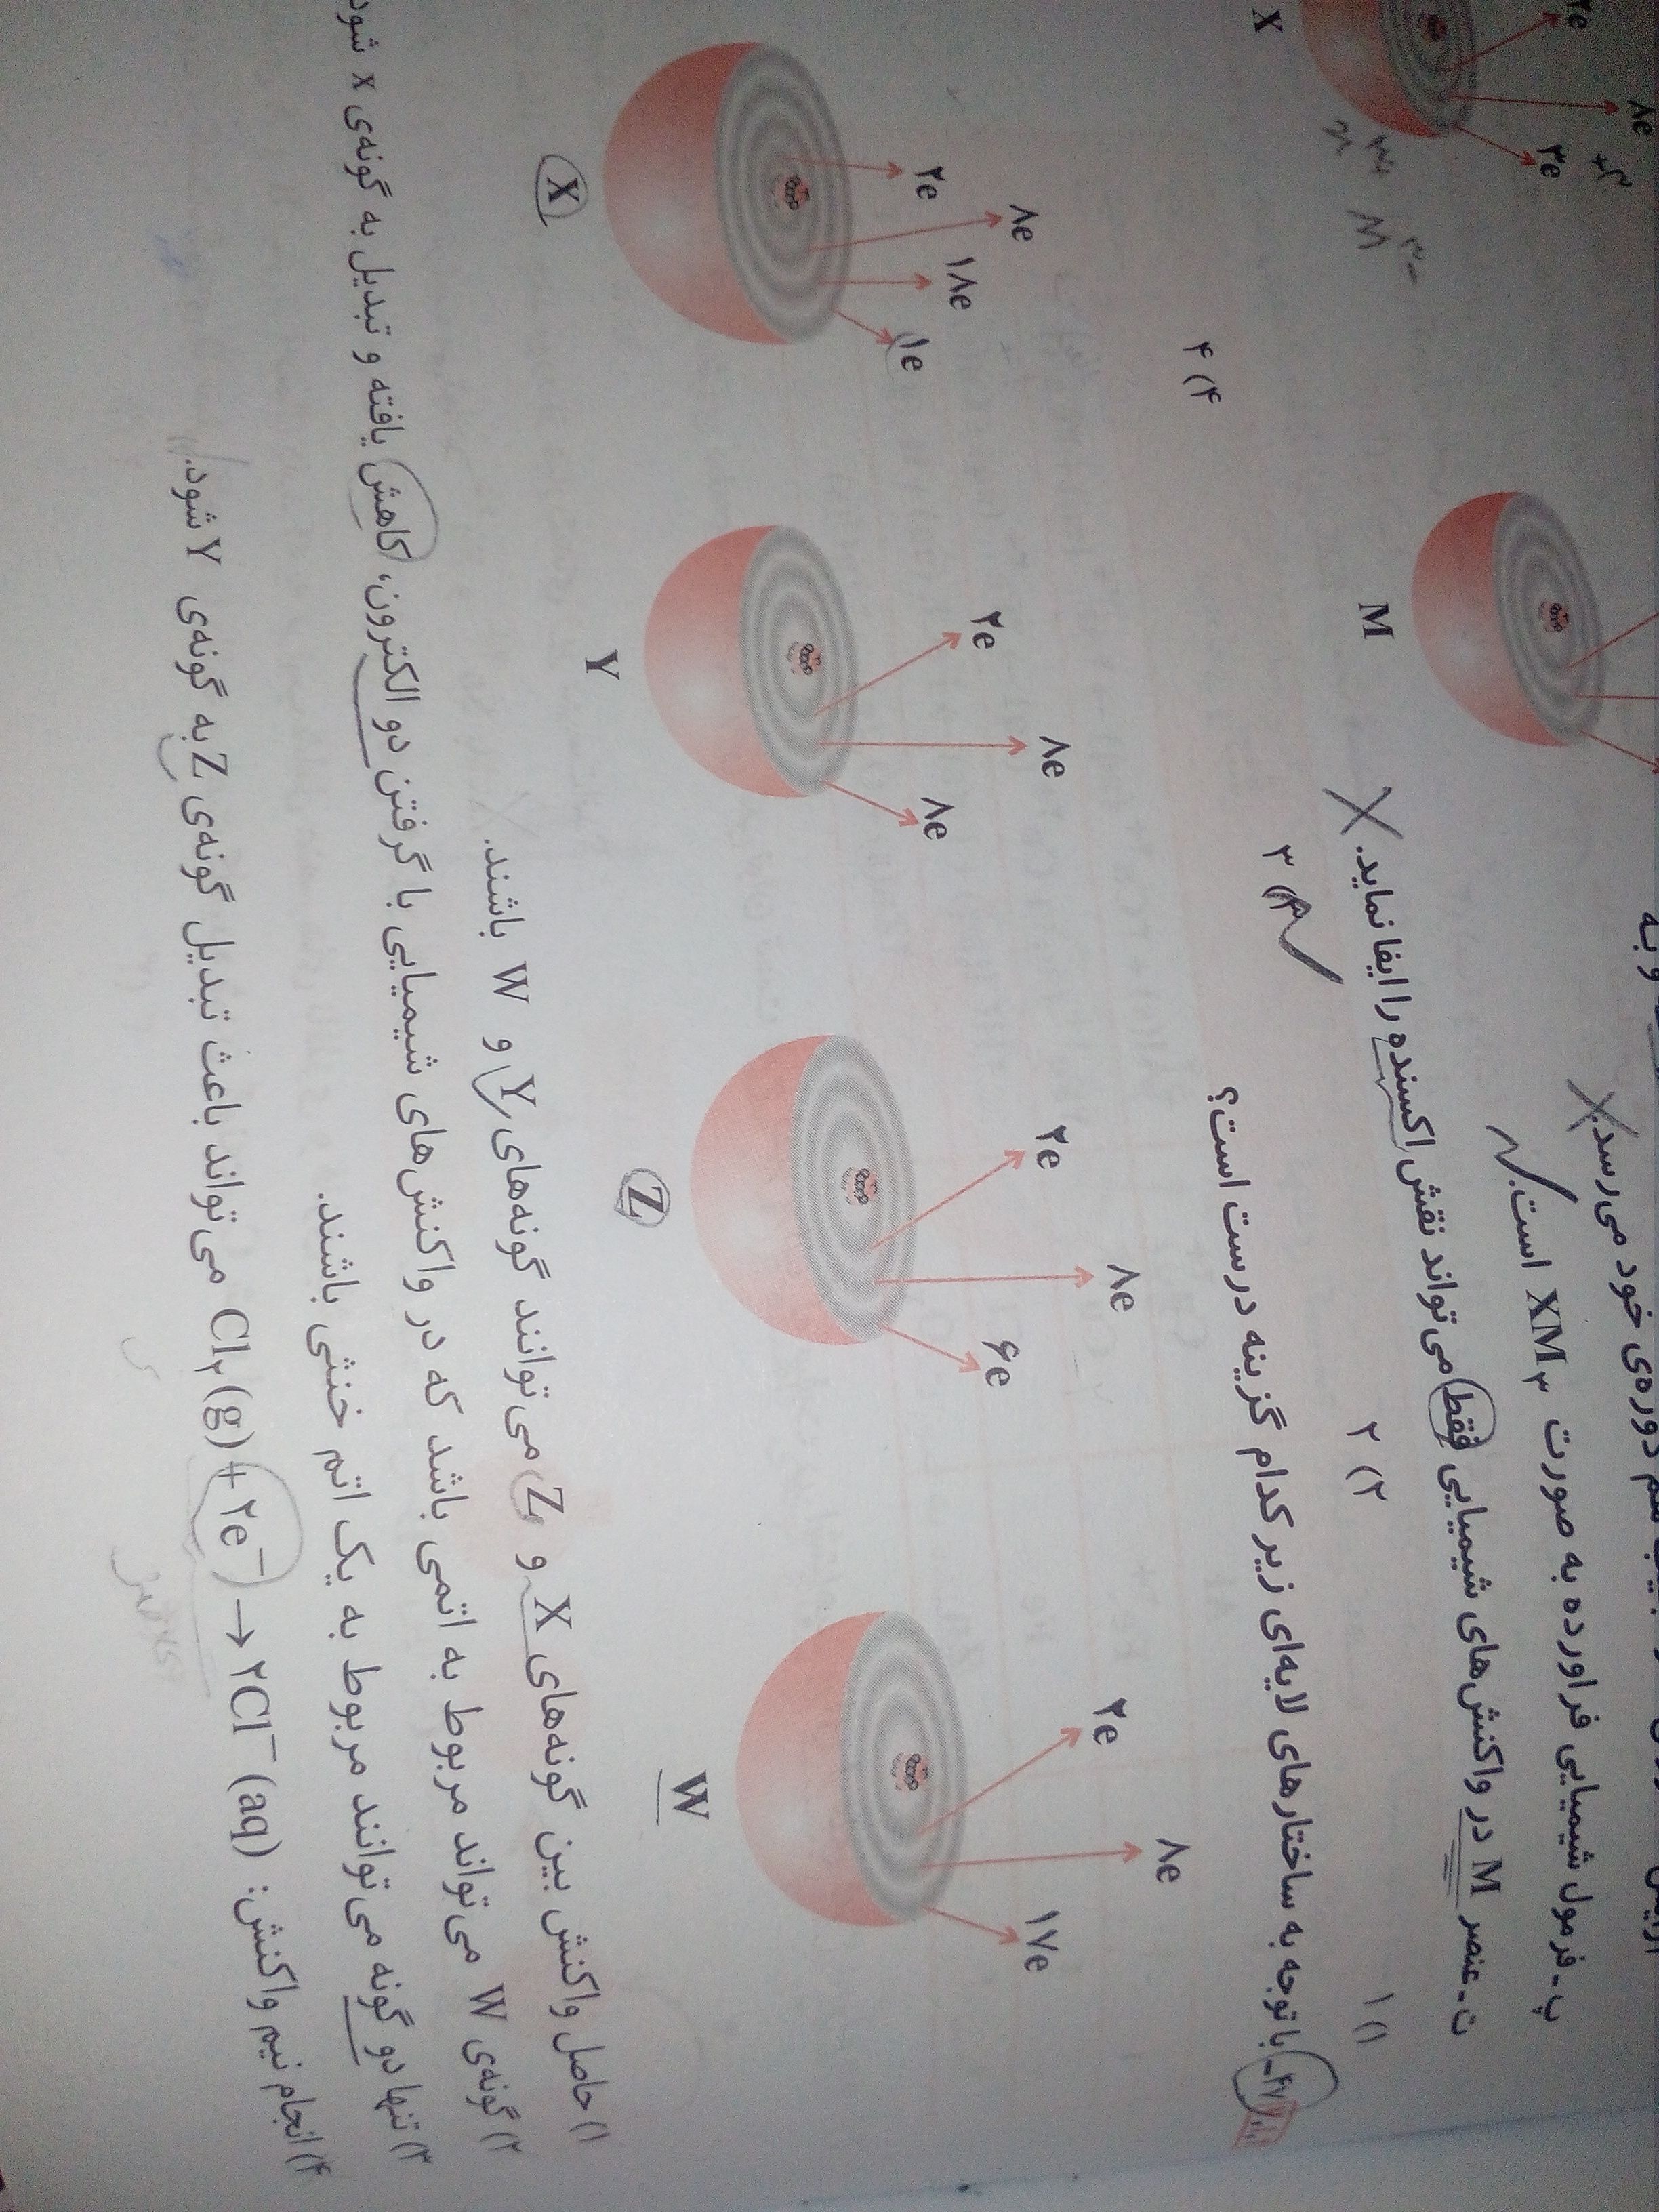 ۲e
۸e
۳e
X
M
و به
خود می‌رسد.
پ- فرمول شیمیایی فراورده به صورت XM۳ است.
ت- عنصر M در واکنش‌های شیمیایی فقط می‌تواند نقش اکسنده را ایفا نماید.
۱) ۱
۲) ۲
۳) ۳
۴) ۴
۴۷- با توجه به ساختارهای لایه‌ای زیر کدام گزینه درست است؟
۲e
۸e
۱۷e
W
۲e
۸e
۶e
Z
۲e
۸e
۸e
Y
۲e
۸e
۱۸e
۱e
X
۱) حاصل واکنش بین گونه‌های X و Z می‌توانند گونه‌های Y و W باشند.
۲) گونه‌ی W می‌تواند مربوط به اتمی باشد که در واکنش‌های شیمیایی با گرفتن دو الکترون، کاهش یافته و تبدیل به گونه‌ی X شود
۳) تنها دو گونه می‌توانند مربوط به یک اتم خنثی باشند.
۴) انجام نیم واکنش: Cl۲(g) + ۲e⁻ → ۲Cl⁻(aq) می‌تواند باعث تبدیل گونه‌ی Z به گونه‌ی Y شود.